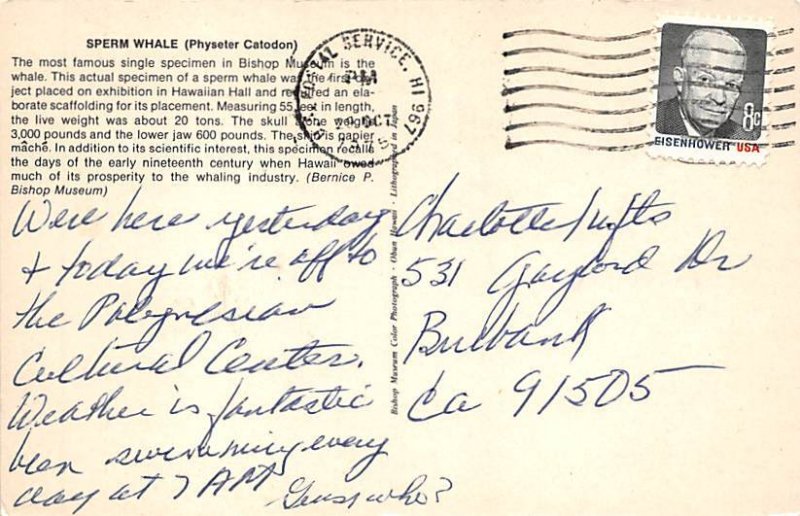 SPERM WHALE (Physeter Catodon)
The most famous single specimen in Bishop Museum is the
whale. This actual specimen of a sperm whale was the first ob-
ject placed on exhibition in Hawaiian Hall and required an ela-
borate scaffolding for its placement. Measuring 55 feet in length,
the live weight was about 20 tons. The skull alone weighs
3,000 pounds and the lower jaw 600 pounds. The skin is papier
mâché. In addition to its scientific interest, this specimen recalls
the days of the early nineteenth century when Hawaii owed
much of its prosperity to the whaling industry. (Bernice P.
Bishop Museum)
Were here yesterday
+ today we're off to
the Polynesian
Cultural Center.
Weather is fantastic
been swimming every
day at 7 AM
Guess who?
Bishop Museum Color Photograph - Oban Hawaii - Lithographed in Japan
POSTAL SERVICE, HI 967
PM
29 OCT
1975
8c
EISENHOWER USA
Charlotte Tufts
531 Gaylord Dr
Burbank
Ca 91505